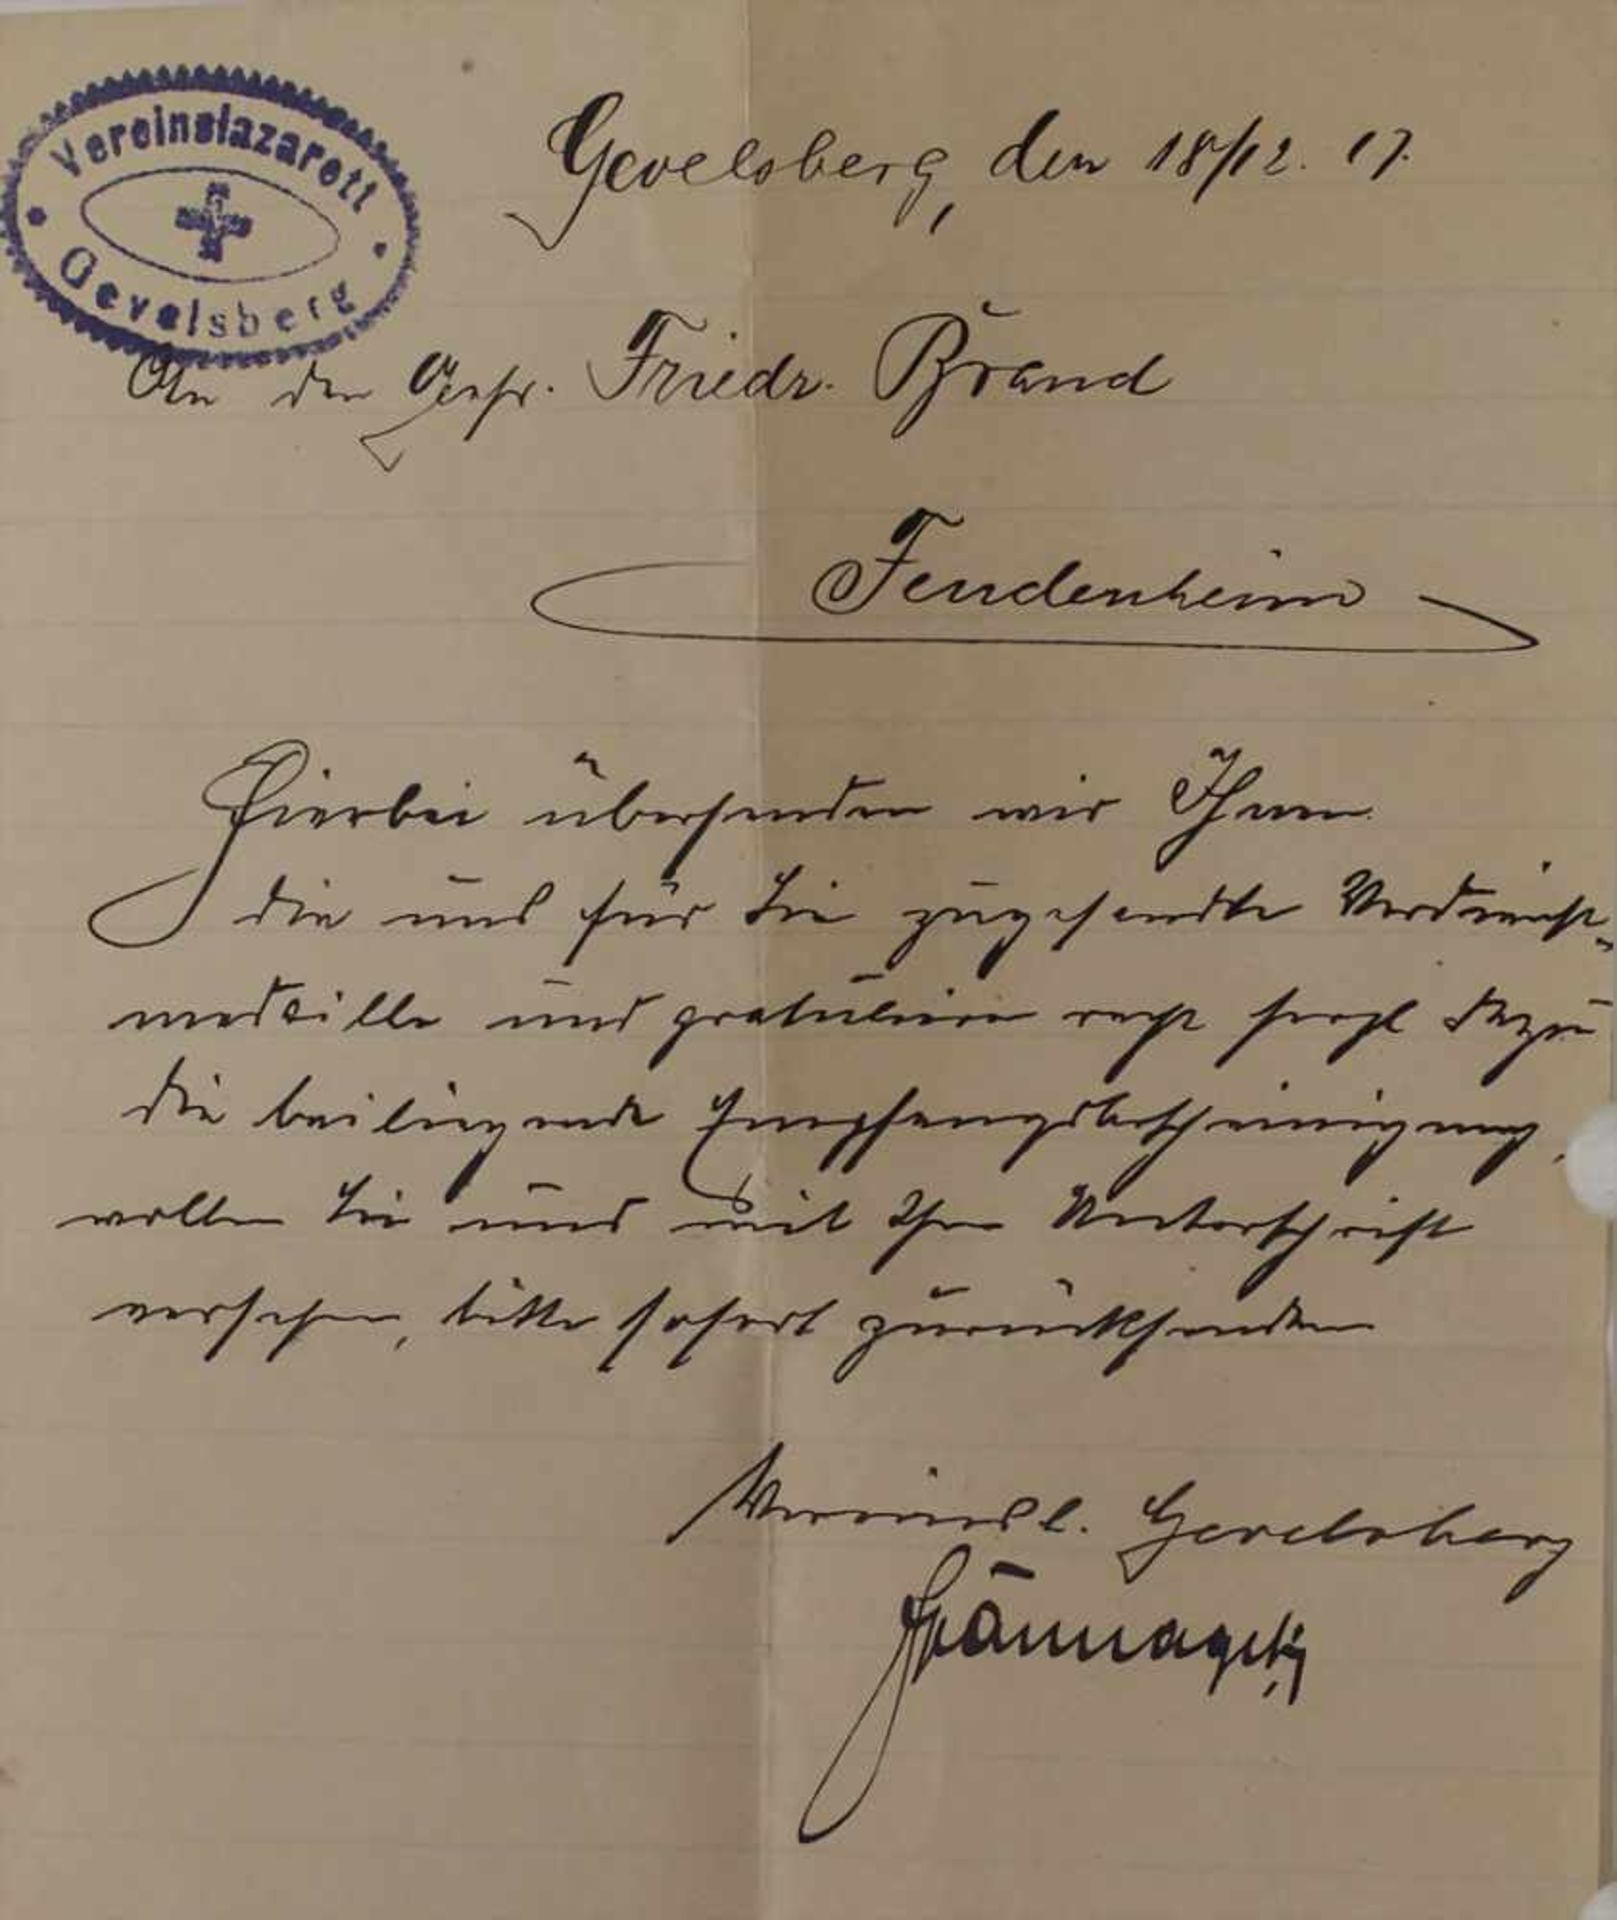 Vereinslazarett
Gevelsberg
Gevelsberg, den 18/12. 17.
An den Gefr. Friedr. Brand
Feudenheim
Hierbei übersenden wir Ihnen
die uns für Sie zugesandte Verdienst-
medaille und gratulieren recht herzl dazu
die beiliegende Empfangsbescheinigung,
wollen Sie uns mit Ihrer Unterschrift
versehen, bitte sofort zurücksenden
Vereinsl. Gevelsberg